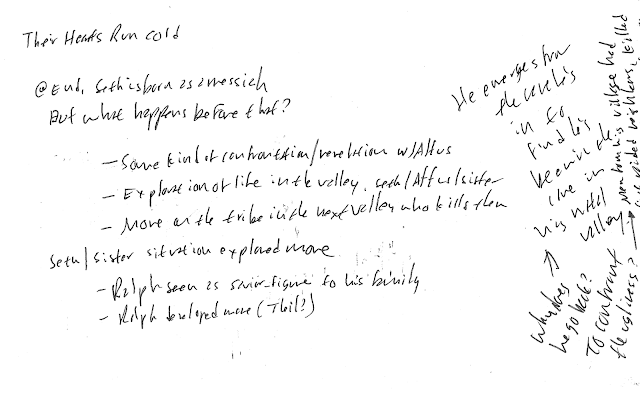 Their Hearts Run cold
@ End, Seth is born as a messiah
But what happens before that?
- Some kind of confrontation/revelation w/
- Exploration of life in the valley. Seth/ /sister
- More on the tribe in the next valley who kills them
Seth/sister situation explored more
- Ralph seen as savior-figure to his family
- Ralph developed more (
He emerges from
in to
find his
in
his
valley
Why does
he go back?
To confront
the ugliness?
→ Men from his village had
neighbors, killed